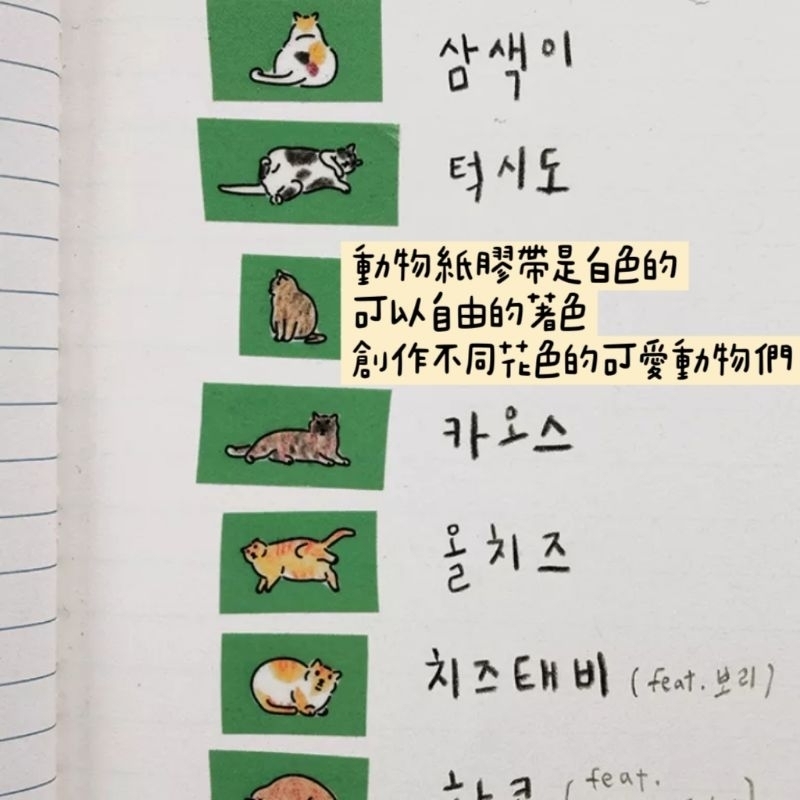 삼색이
턱시도
動物紙膠帶是白色的
可以自由的著色
創作不同花色的可愛動物們
카오스
올치즈
치즈태비 (feat. 보리)
(feat.